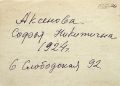 Аксенова
Софья Никитична
1924г.
6 Слободская 92.